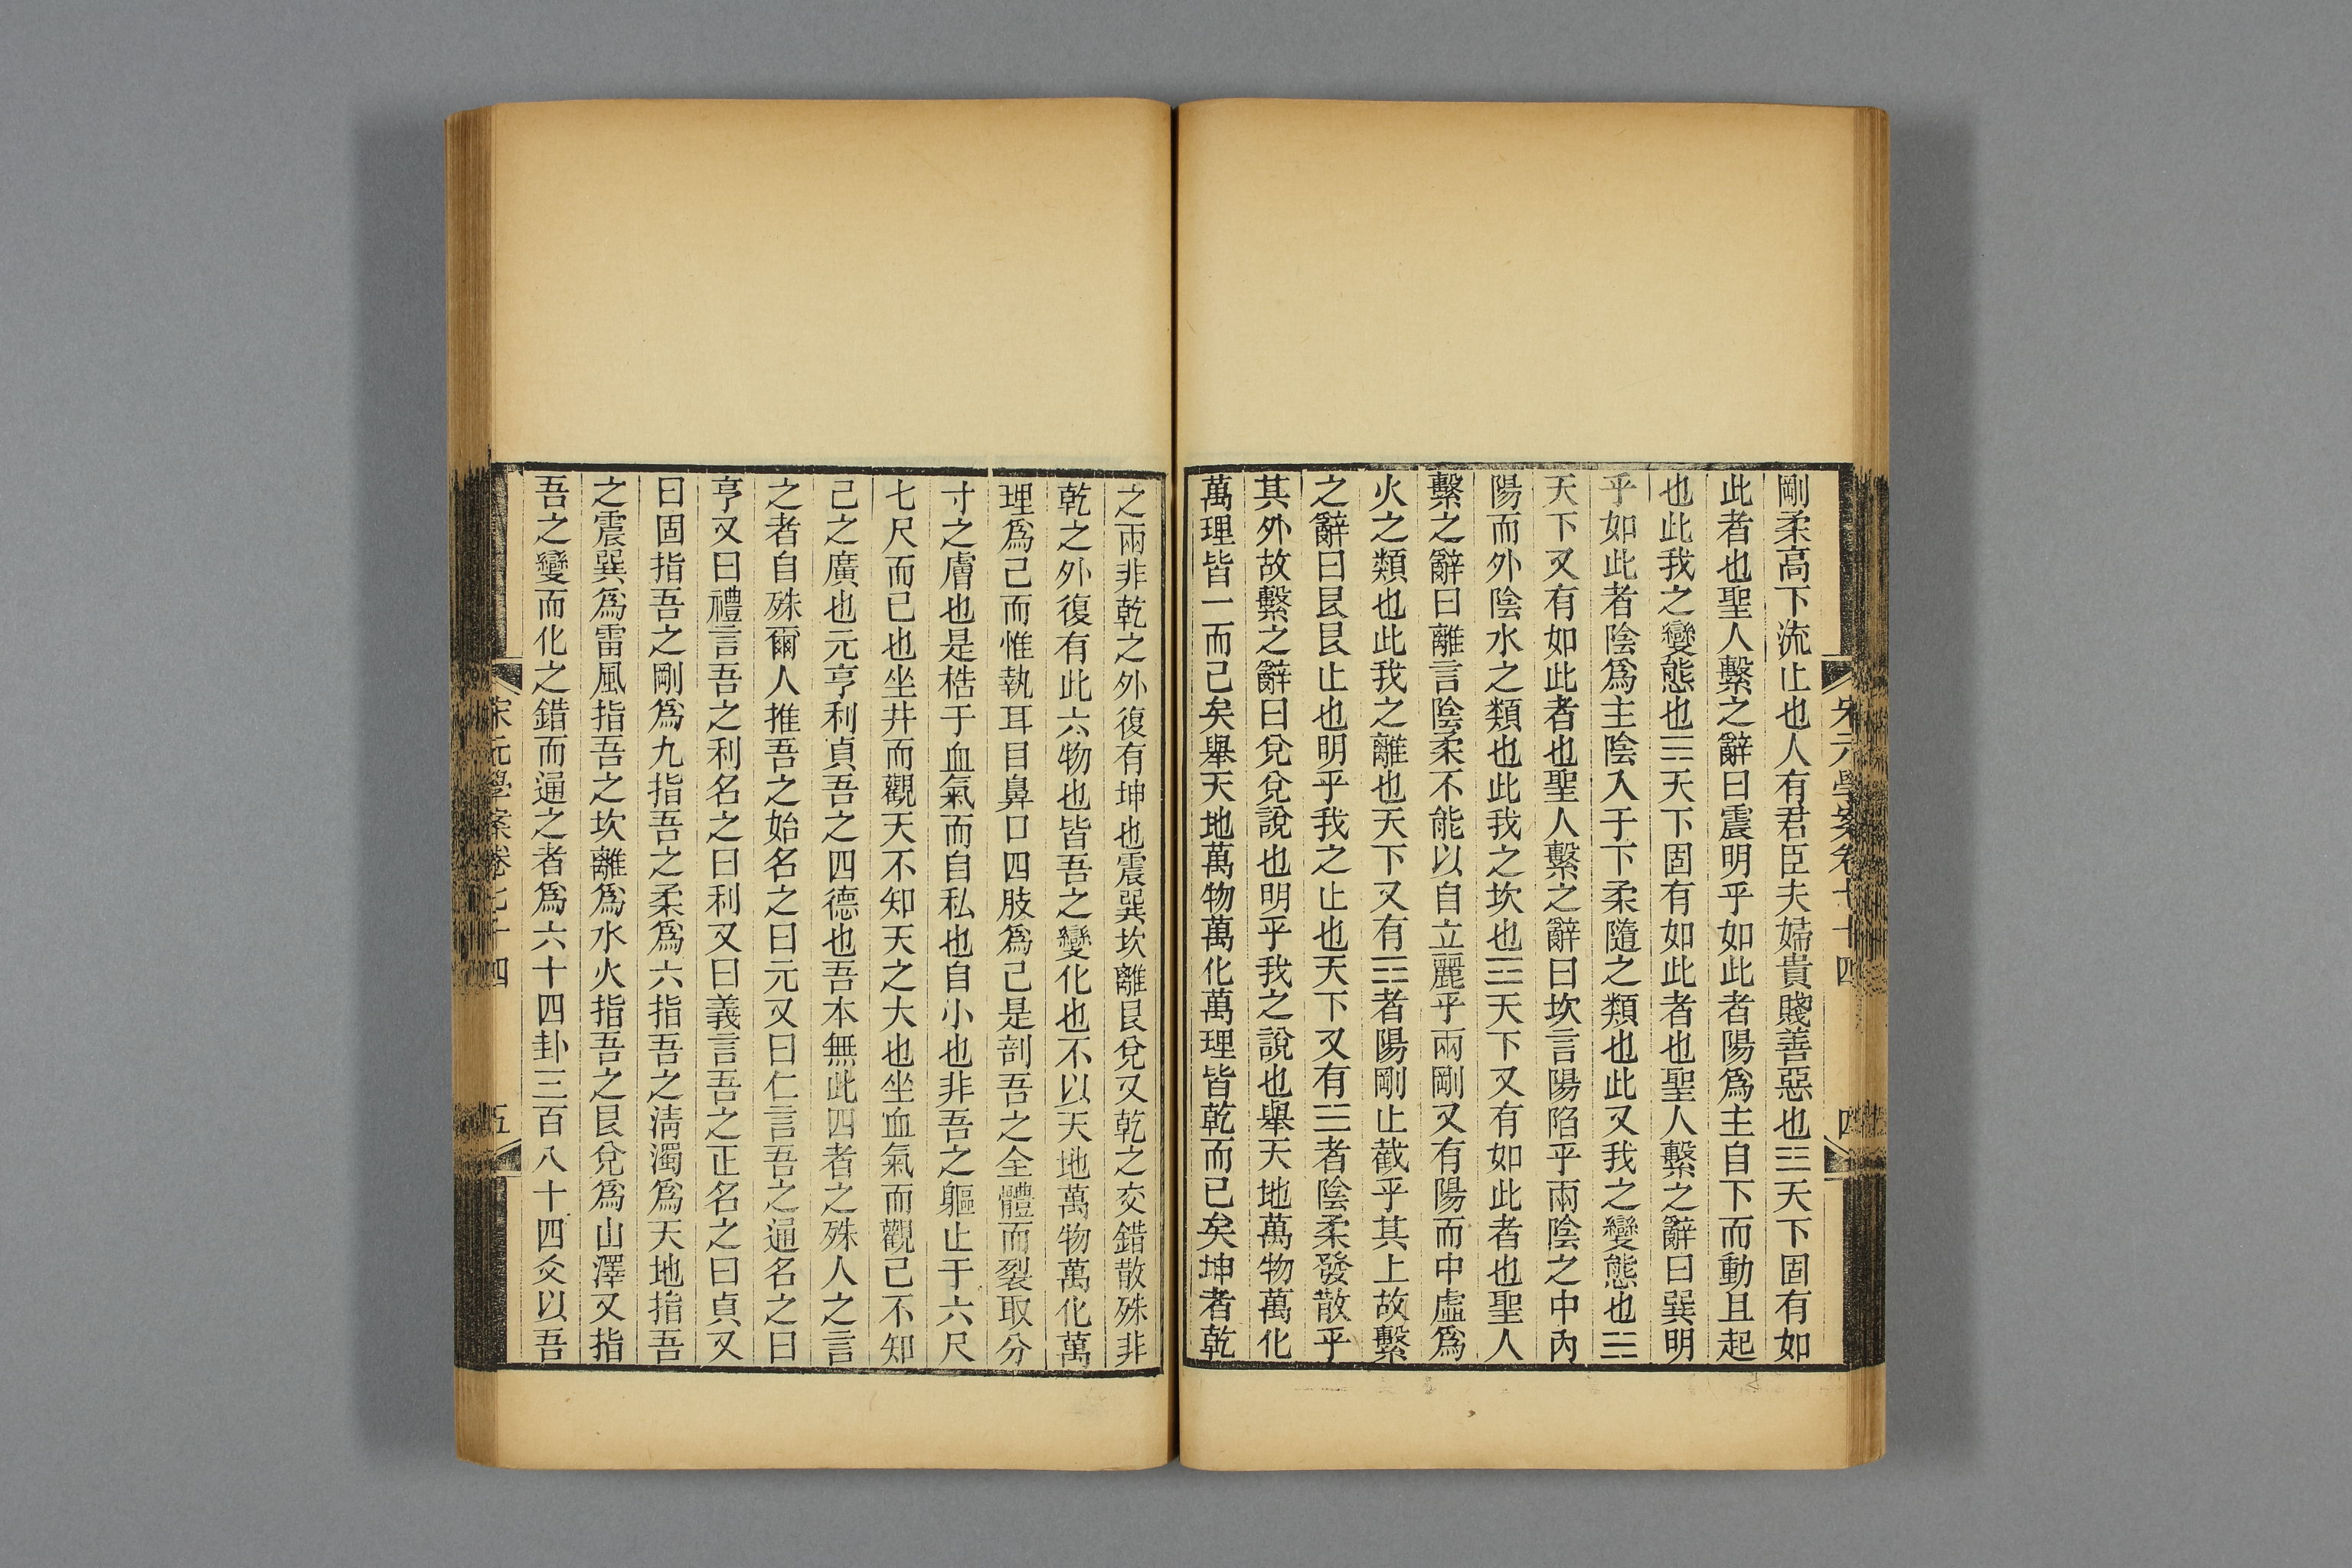 宋元學案卷七十四
四
剛柔高下流止也人有君臣夫婦貴賤善惡也☳天下固有如
此者也聖人繫之辭曰震明乎如此者陽爲主自下而動且起
也此我之變態也☴天下固有如此者也聖人繫之辭曰巽明
乎如此者陰爲主陰入于下柔隨之類也此又我之變態也☵
天下又有如此者也聖人繫之辭曰坎言陽陷乎兩陰之中內
陽而外陰水之類也此我之坎也☲天下又有如此者也聖人
繫之辭曰離言陰柔不能以自立麗乎兩剛又有陽而中虛爲
火之類也此我之離也天下又有☶者陽剛止截乎其上故繫
之辭曰艮艮止也明乎我之止也天下又有☱者陰柔發散乎
其外故繫之辭曰兌兌說也明乎我之說也舉天地萬物萬化
萬理皆一而已矣舉天地萬物萬化萬理皆乾而已矣坤者乾
之兩非乾之外復有坤也震巽坎離艮兌又乾之交錯散殊非
乾之外復有此六物也皆吾之變化也不以天地萬物萬化萬
理爲己而惟執耳目鼻口四肢爲己是剖吾之全體而裂取分
寸之膚也是梏于血氣而自私也自小也非吾之軀止于六尺
七尺而已也坐井而觀天不知天之大也坐血氣而觀己不知
己之廣也元亨利貞吾之四德也吾本無此四者之殊人之言
之者自殊爾人推吾之始名之曰元又曰仁言吾之通名之曰
亨又曰禮言吾之利名之曰利又曰義言吾之正名之曰貞又
曰固指吾之剛爲九指吾之柔爲六指吾之淸濁爲天地指吾
之震巽爲雷風指吾之坎離爲水火指吾之艮兌爲山澤又指
吾之變而化之錯而通之者爲六十四卦三百八十四爻以吾
宋元學案卷七十四
五